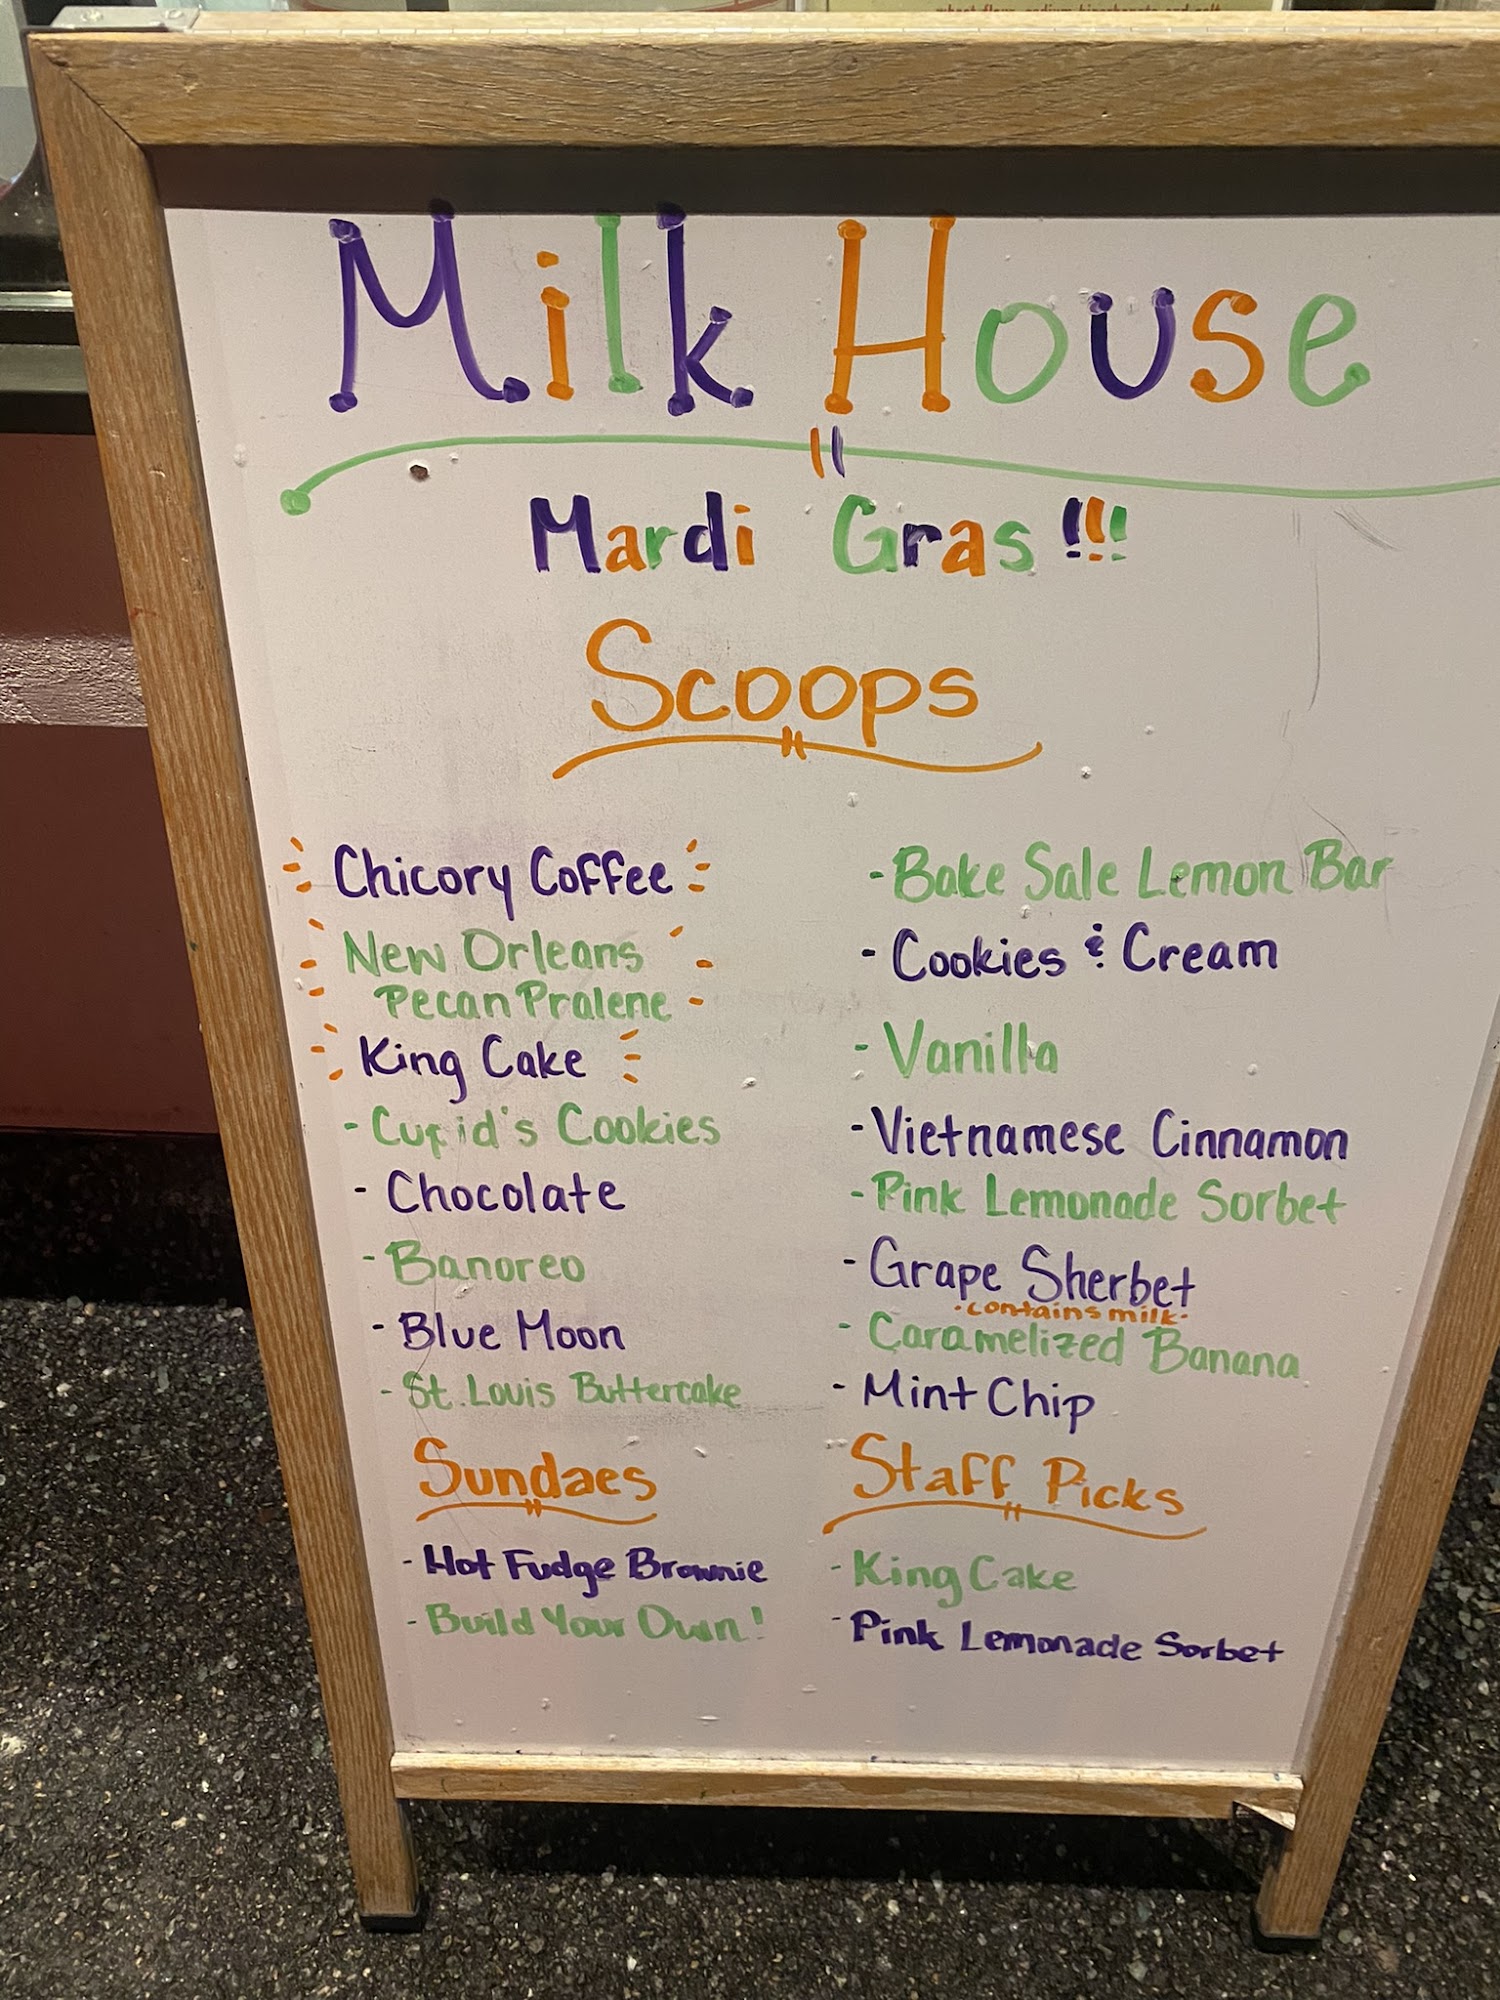 wheat flour, sodium bicarbonate and salt
Milk House
Mardi Gras!!!
Scoops
Chicory Coffee
New Orleans
Pecan Pralene
King Cake
- Cupid's Cookies
- Chocolate
- Banoreo
- Blue Moon
- St. Louis Buttercake
- Bake Sale Lemon Bar
- Cookies & Cream
- Vanilla
- Vietnamese Cinnamon
- Pink Lemonade Sorbet
- Grape Sherbet
·contains milk·
- Caramelized Banana
- Mint Chip
Sundaes
- Hot Fudge Brownie
- Build Your Own!
Staff Picks
- King Cake
- Pink Lemonade Sorbet